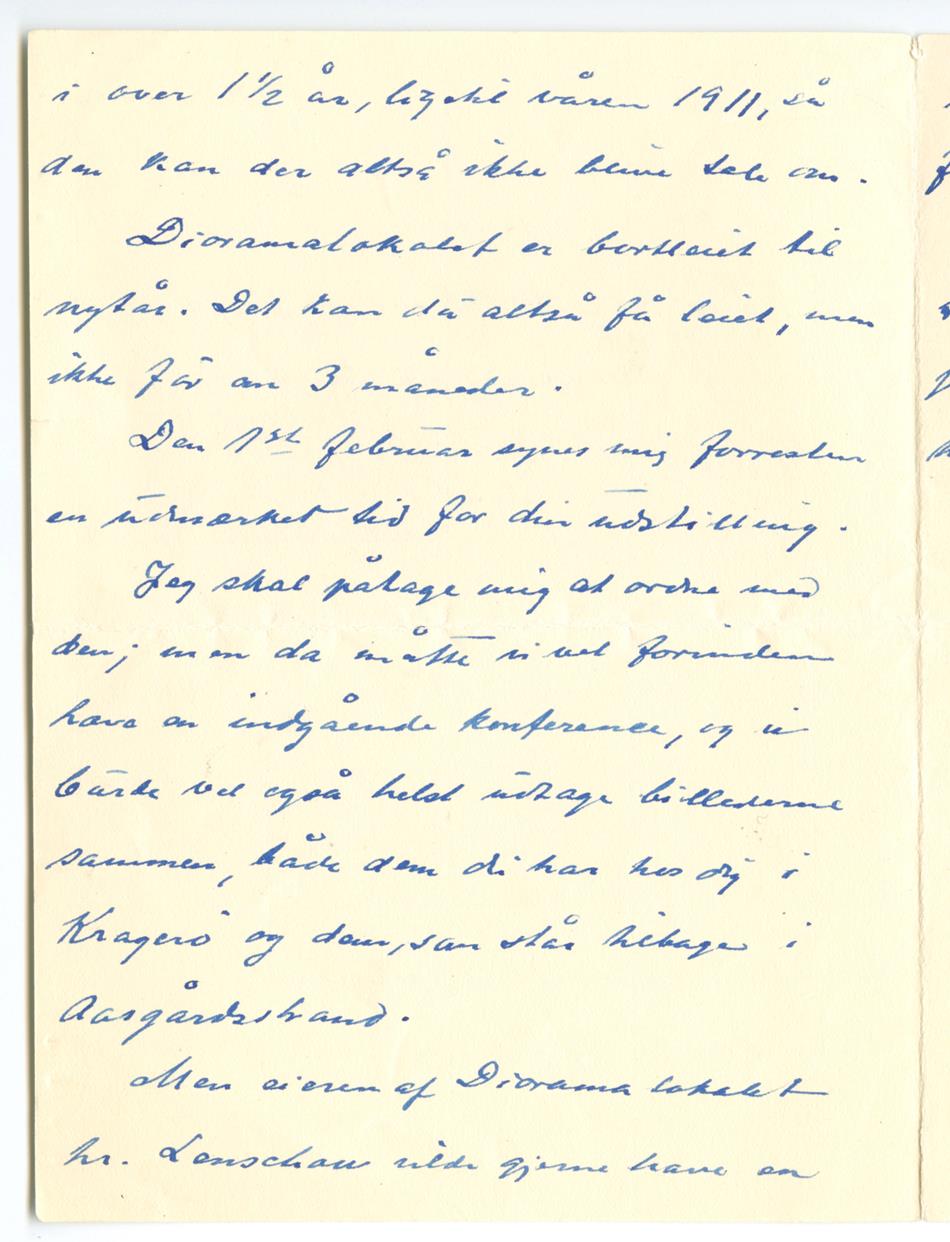 i over 1 1/2 år, ligetil våren 1911, så
den kan der altså ikke blive tale om.
Dioramalokalet er bortleiet til
nytår. Det kan du altså få leiet, men
ikke før om 3 måneder.
Den 1st februar synes mig forresten
en udmærket tid for din udstilling.
Jeg skal påtage mig at ordne med
den; men da måtte vi vel forinden
have en indgående konference, og vi
burde vel også helst udtage billederne
sammen, både dem du har hos dig i
Kragerö og dem, som står tilbage i
Aasgårdsstrand.
Men eieren af Dioramalokalet
hr. Lenschau vilde gjerne have en